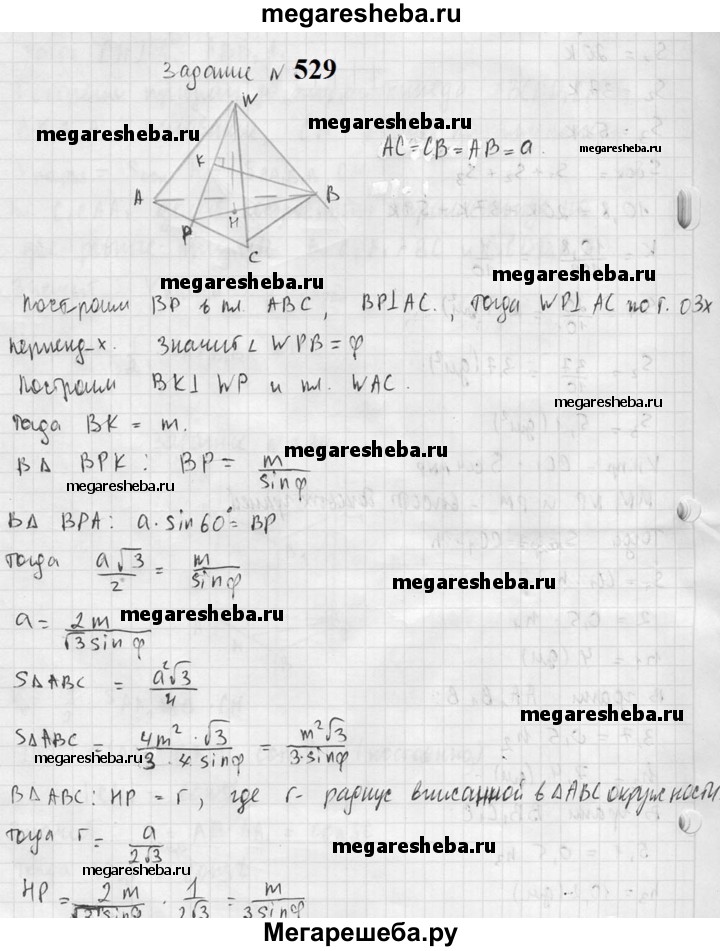 megaresheba.ru
Задание N 529
W
megaresheba.ru
megaresheba.ru
AC=CB=AB=a.
megaresheba.ru
K
A
B
P
H
C
megaresheba.ru
megaresheba.ru
Построим BP в пл. ABC, BP⊥AC., тогда WP⊥AC по т. О 3х
перпенд-х. Значит ∠ WPB = φ
megaresheba.ru
Построим BK⊥ WP и пл. WAC.
megaresheba.ru
Тогда BK = m.
megaresheba.ru
В Δ BPK: BP = m/sinφ
megaresheba.ru
В Δ BPA: a·sin60° = BP
Тогда a√3/2 = m/sinφ
megaresheba.ru
a = 2m/√3sinφ
megaresheba.ru
SΔABC = a²√3/4
megaresheba.ru
SΔABC = 4m²·√3/3·4sinφ = m²√3/3·sinφ
megaresheba.ru
В Δ ABC: HP = r, где r- радиус вписанной в ΔABC окружности
Тогда r = a/2√3
megaresheba.ru
megaresheba.ru
HP = 2m/√3sinφ · 1/2√3 = m/3sinφ
megaresheba.ru
Мегарешеба.ру